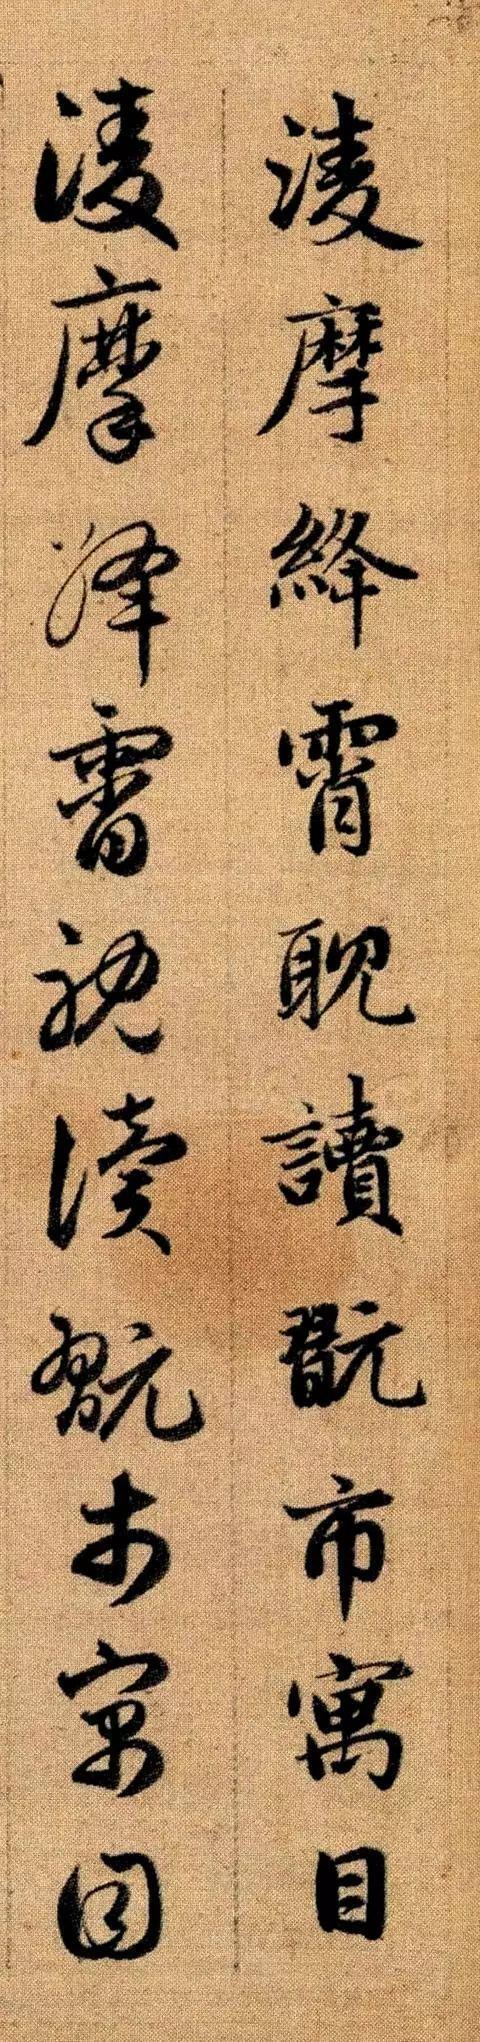 凌摩絳霄耽讀翫市寓目
凌摩絳霄耽讀翫市寓目